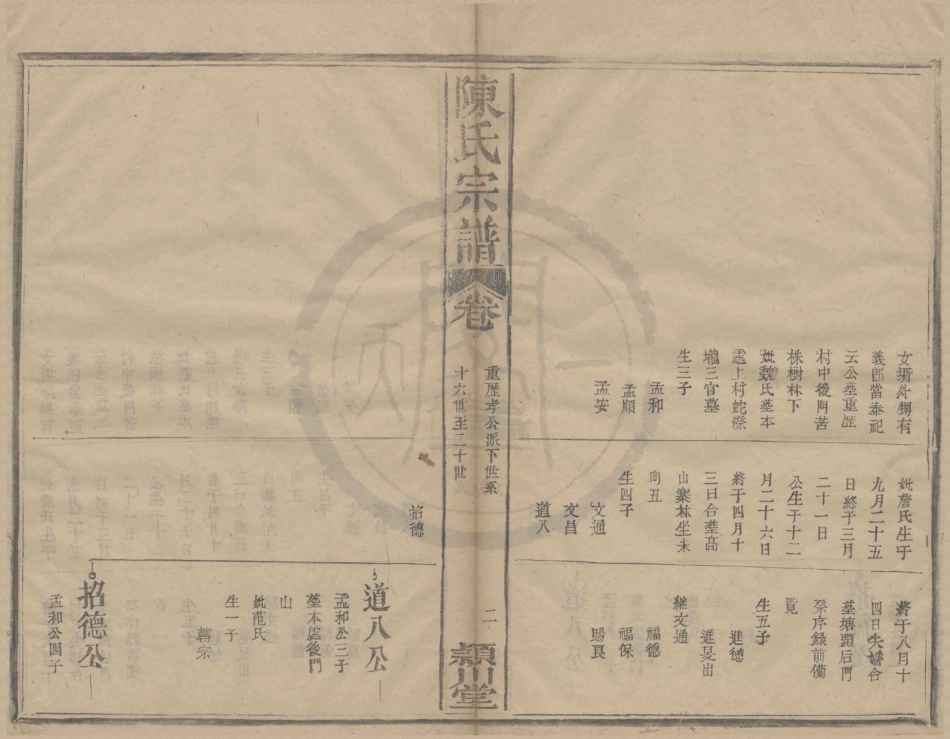 女壻外甥有
義郎當奉祀
云公塟重歷
村中後門苦
株樹林下
妣魏氏塟本
處上村蛇際
壠三官墓
生三子
孟和
孟順
孟安
妣詹氏生于
九月二十五
日終于三月
二十一日
公生于十二
月二十六日
終于四月十
三日合塟高
山寨林坐未
向丑
生四子
文通
文昌
道八
終于八月十
四日夫婦合
塟塘頭后門
祭序錄前備
覽
生五子
進德
進旻出
繼文通
福德
福保
賜良
陳氏宗譜
卷
重歷孝公派下世系
十六世至二十世
二
穎川堂
招德
道八公
孟和公三子
塟本處後門
山
妣范氏
生一子
韓宗
招德公
孟和公四子